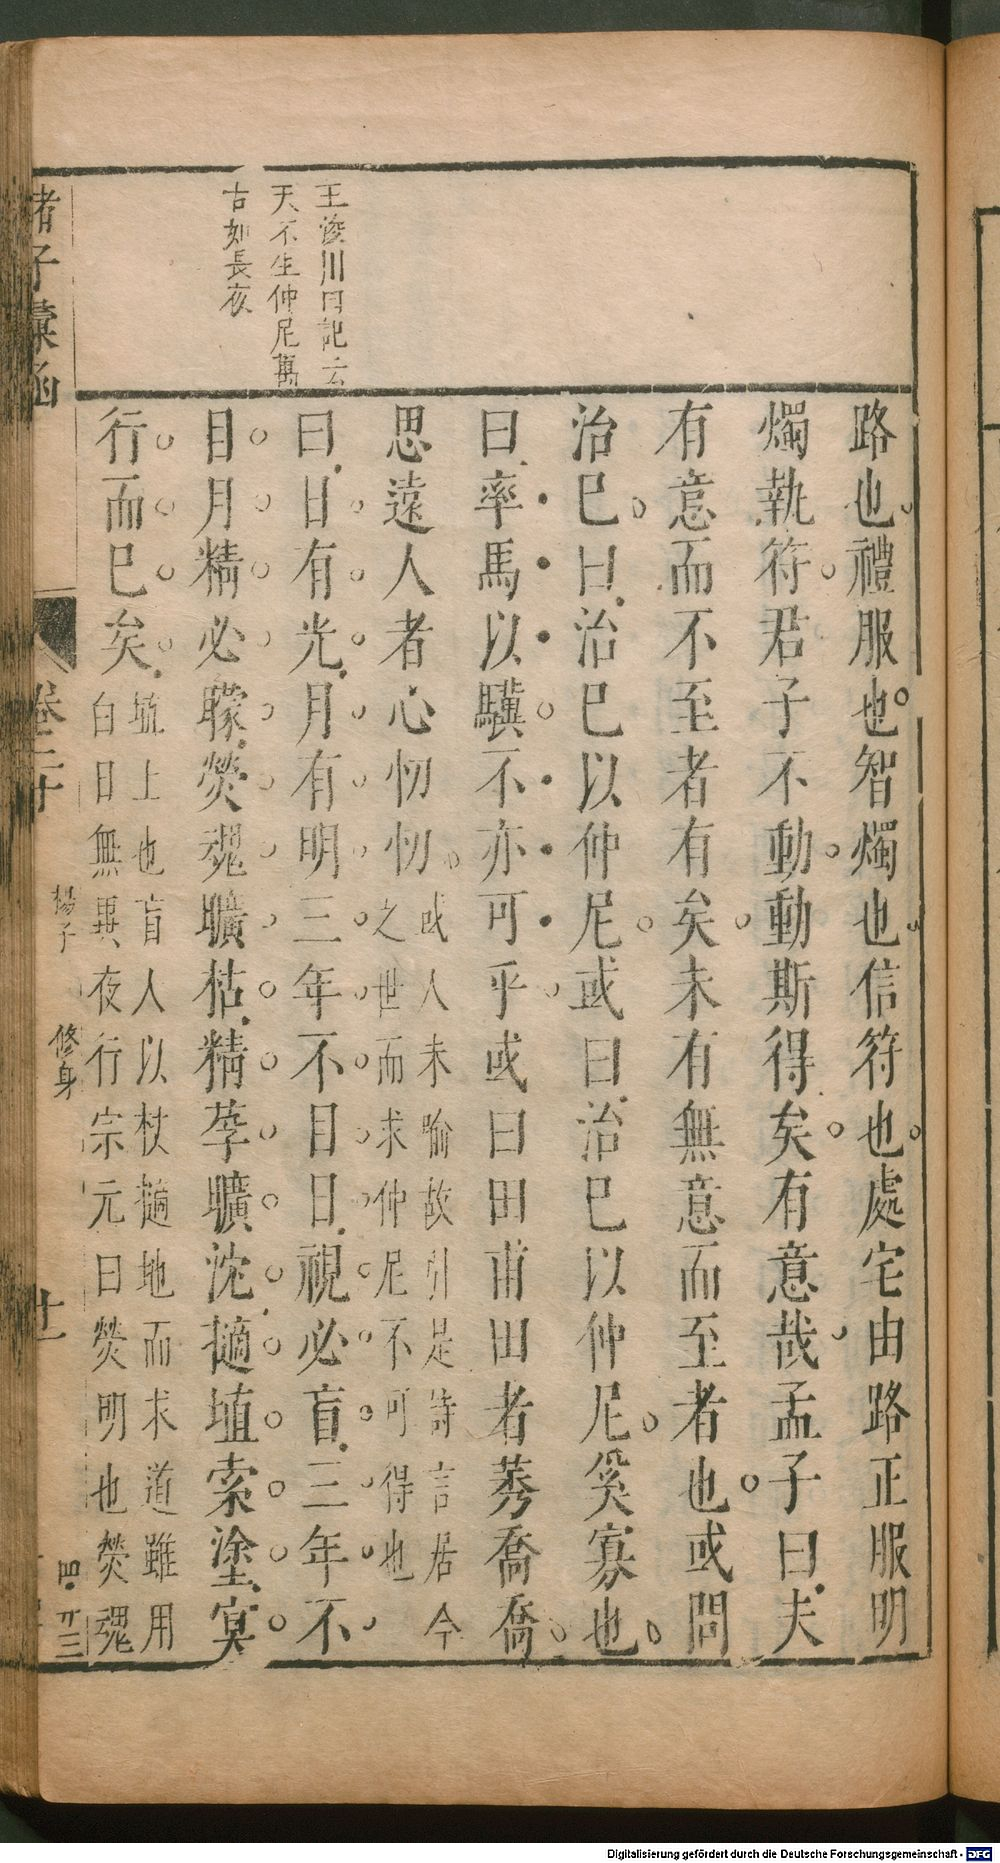 王浚川曰記云
天不生仲尼萬
古如長夜
路也禮服也智燭也信符也處宅由路正服明
燭執符君子不動動斯得矣有意哉孟子曰夫
有意而不至者有矣未有無意而至者也或問
治巳曰治巳以仲尼或曰治巳以仲尼奚寡也
曰率馬以驥不亦可乎或曰田甫田者莠喬喬
思遠人者心忉忉或人未喻故引是詩言居今
之世而求仲尼不可得也
曰日有光月有明三年不目日視必盲三年不
目月精必矇熒魂曠枯精莩曠沈擿埴索塗冥
行而巳矣埴土也盲人以杖擿地而求道雖用
白日無異夜行宗元曰熒明也熒魂
諸子彙函
卷二十
揚子
修身
廿一
四
廿三
Digitalisierung gefördert durch die Deutsche Forschungsgemeinschaft - DFG